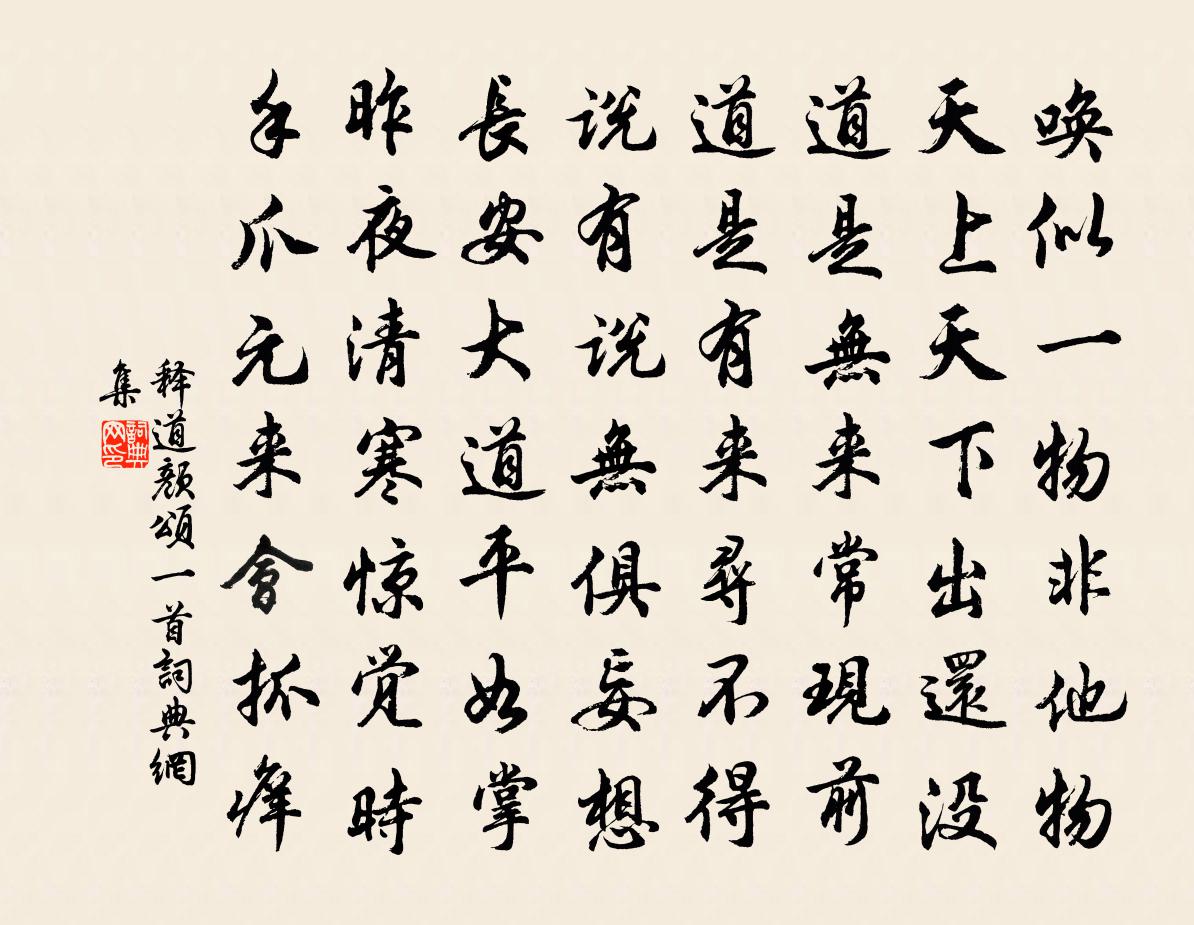 唤似一物非他物
天上天下出還没
道是無来常現前
道是有来尋不得
说有说無俱妄想
長安大道平如掌
昨夜清寒惊觉時
手爪元来會抓癢
释道顏頌一首詞典網
集
詞典网印